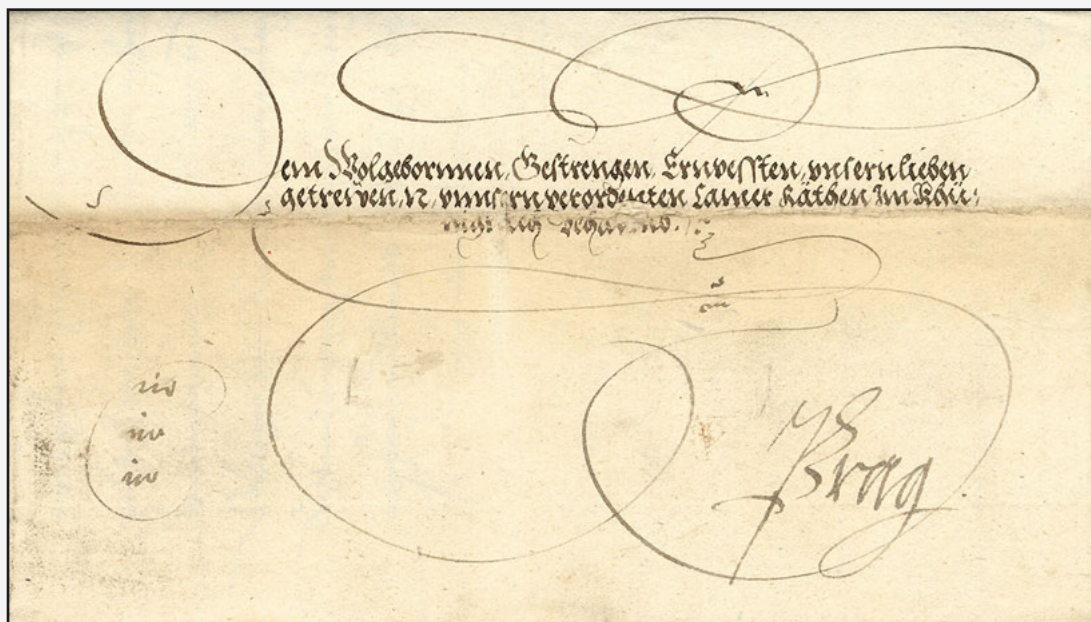 Den Wolgebornnen, Gestrengen, Ernvessten, vnsern lieben
getrewen, vnnsern verordenten Camer Räthen Im Khü:
nigreich Behaimb.
in
in
in
Prag